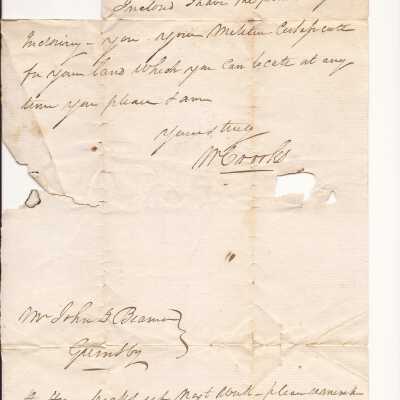 Inclosed I have the
Inclosing – you – your Militia Certificate
for your land which you can locate at any
time you please I am
Yours truly
W Crooks
Mr John D Beamer
Grimsby
next week – please